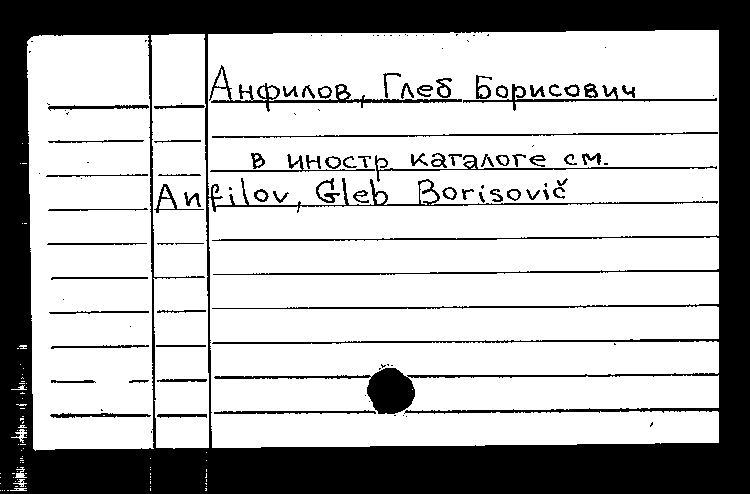 Анфилов, Глеб Борисович
в иностр каталоге см.
Anfilov, Gleb Borisovič